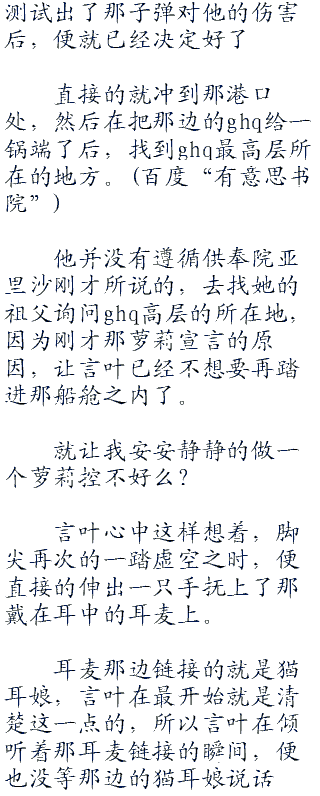 测试出了那子弹对他的伤害
后，便就已经决定好了
直接的就冲到那港口
处，然后在把那边的ghq给一
锅端了后，找到ghq最高层所
在的地方。(百度“有意思书
院”)
他并没有遵循供奉院亚
里沙刚才所说的，去找她的
祖父询问ghq高层的所在地，
因为刚才那萝莉宣言的原
因，让言叶已经不想要再踏
进那船舱之内了。
就让我安安静静的做一
个萝莉控不好么？
言叶心中这样想着，脚
尖再次的一踏虚空之时，便
直接的伸出一只手抚上了那
戴在耳中的耳麦上。
耳麦那边链接的就是猫
耳娘，言叶在最开始就是清
楚这一点的，所以言叶在倾
听着那耳麦链接的瞬间，便
也没等那边的猫耳娘说话